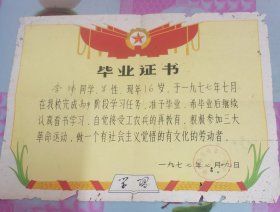 毕业证书
同学，性，现年16岁，于一九七七年七月
在我校完成初中阶段学习任务，准予毕业。希毕业后继续
认真看书学习，自觉接受工农兵的再教育，积极参加三大
革命运动，做一个有社会主义觉悟的有文化的劳动者。
一九七七年七月日